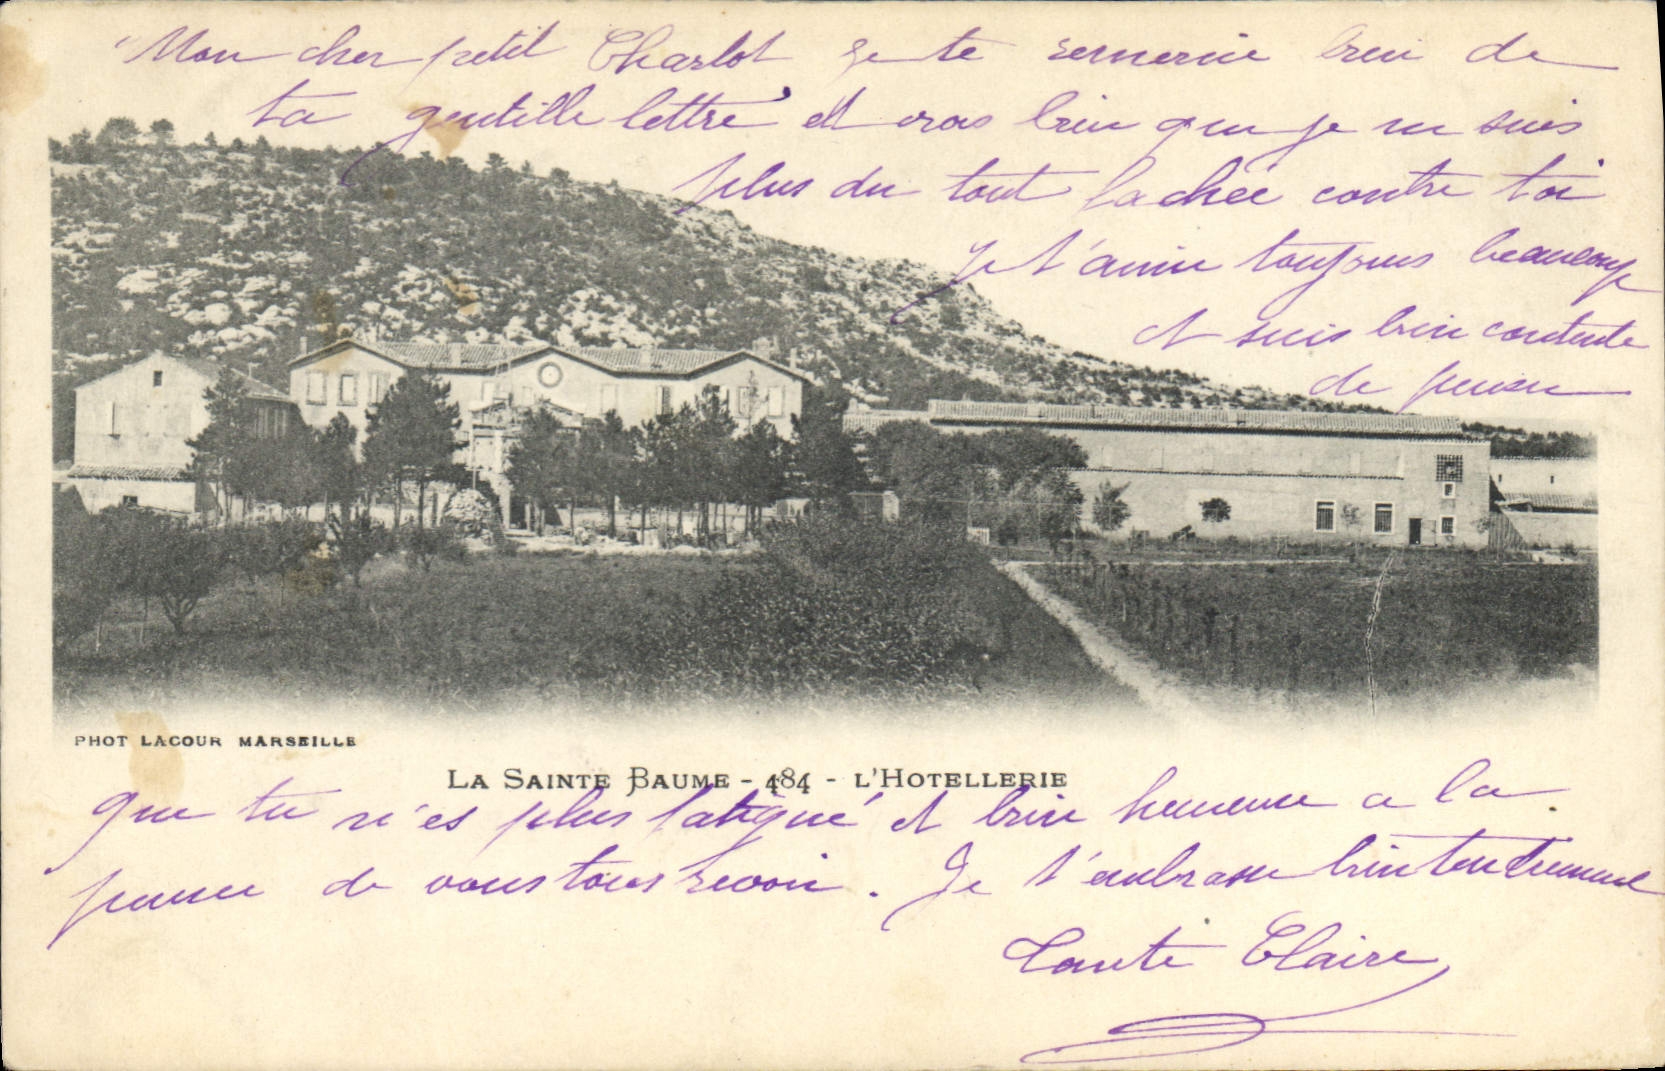 Mon cher petit Charlot Je te remercie bien de
ta gentille lettre et crois bien que je ne suis
plus du tout fachée contre toi
Je t'aime toujours beaucoup
et suis bien contente
de penser
PHOT LACOUR MARSEILLE
LA SAINTE BAUME - 484 - L'HOTELLERIE
que tu n'es plus fatigué et bien heureuse a la
pensee de vous tous revoir. Je t'embrasse bien tendrement
Tante Claire